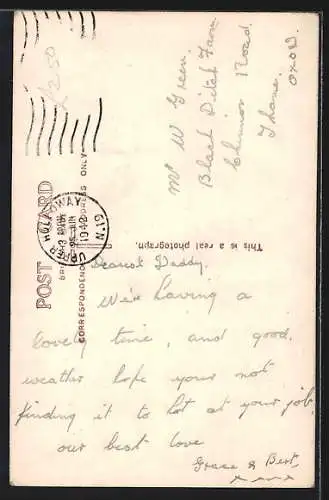 POST CARD
CORRESPONDENCE
ADDRESS ONLY
This is a real photograph.
UPPER HOLLOWAY
1942
N.19
£2.50
Mr W Green.
Black Ditch Farm
Chinnor Road
Thame.
Oxon.
Dearest Daddy.
We're having a
lovely time, and good.
weather hope your not
finding it to hot at your job,
our best love
Grace & Bert.
x x x x